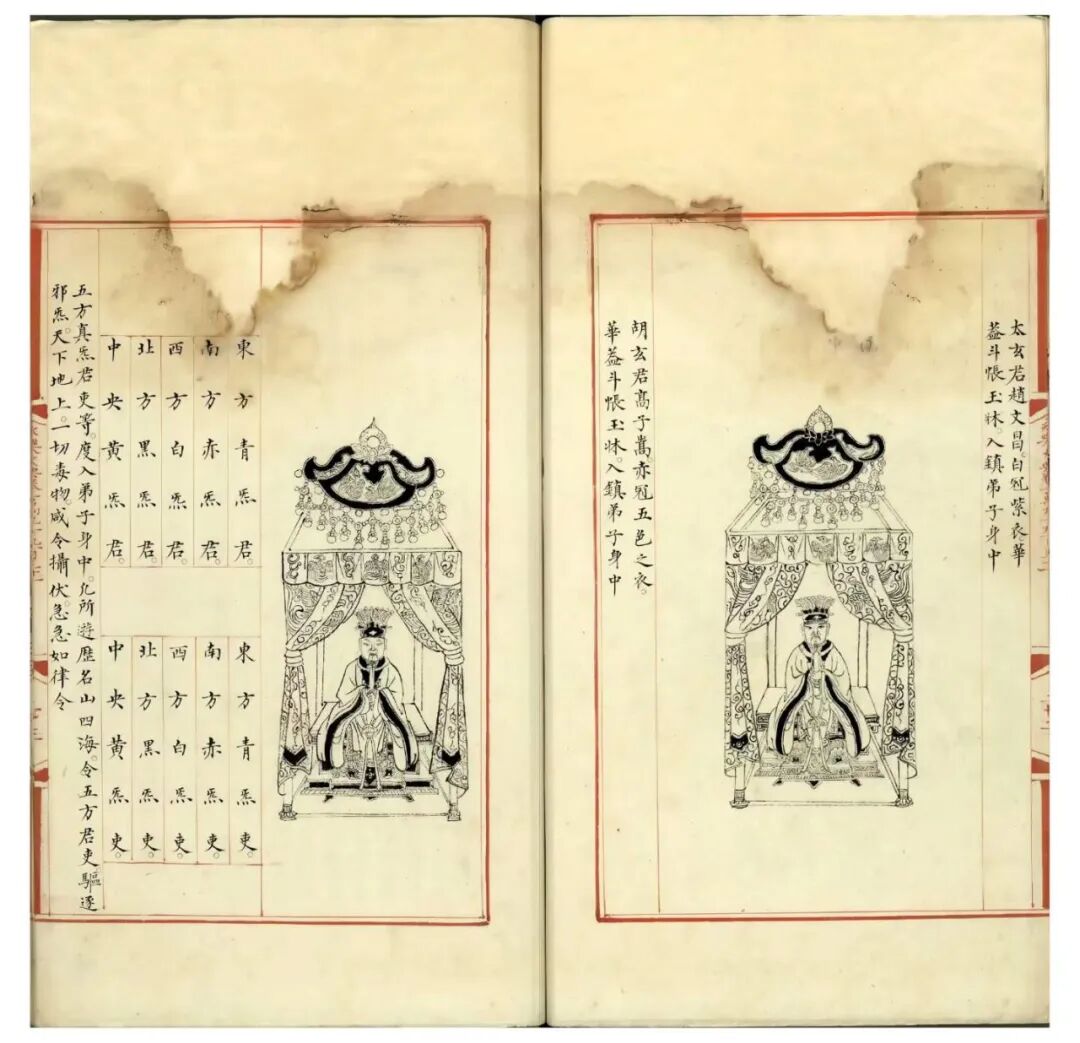 太玄君趙文昌。白冠紫衣華
葢斗帳玉牀。入鎮弟子身中
胡玄君高子嵩赤冠五色之衣。
華葢斗帳玉牀。入鎮弟子身中
東方青炁君。
南方赤炁君。
西方白炁君。
北方黑炁君。
中央黃炁君。
東方青炁吏。
南方赤炁吏。
西方白炁吏。
北方黑炁吏。
中央黃炁吏。
五方真炁君吏等。度入弟子身中。凢所遊歷名山四海。令五方君吏驅逐
邪炁。天下地上。一切毒物。咸令攝伏。急急如律令